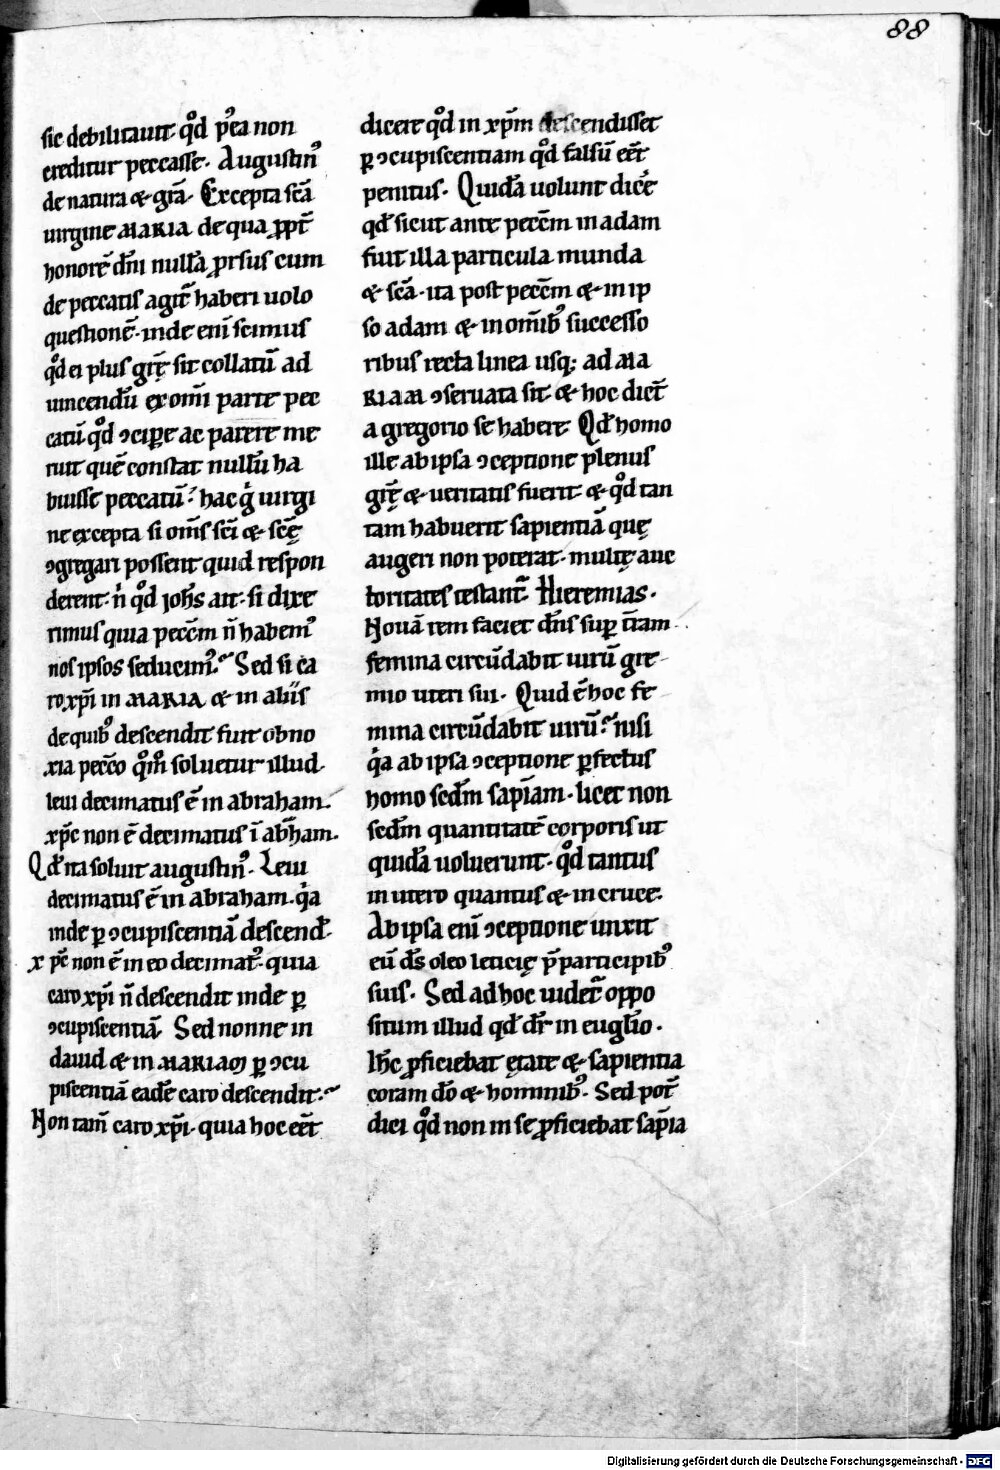 88
sic debilitauit q͛d pͦea non
creditur peccasse. Augustin᷒
de natura & gr̄a. Excepta sc̄a
uirgine MARIA de qua ꝓpt̄
honorē dn̄i nullā ꝓrsus cum
de peccatis agit̄ haberi uolo
questionē. inde eni̅ scimus
q͛d ei plus grę̄ sit collatū ad
uincendū ex omī parte pec
catū q͛d ↄciꝑe ac parere me
ruit quē constat nullū ha
buisse peccatū? hac g̍ uirgi
ne excepta si om̄s sc̄i & sc̄ę
ↄgregari possent quid respon
derent. n̍ q͛d joħs ait. si dixe
rimus quia pecc̄m n̄ habem᷒
nos ipsos seducim᷒. Sed si ca
ro xp̄i in MARIA & in aliis
de quib᷒ descendit fuit obno
xia pecc̄o q͛m͛ soluetur illud.
leui decimatus ē in abraham.
xp̄c non ē decimatus ī abħam.
Qđ ita soluit augustin᷒. Leui
decimatus ē in abraham. q̍a
inde ꝑ ↄcupiscentiā descend̄.
xp̄c non ē in eo decimat᷒. quia
caro xp̄i n̄ descendit inde ꝑ
ↄcupiscentiā. Sed nonne in
dauid & in MARIAM ꝑ ↄcu
piscentiā eadē caro descendit?
Non tam̄ caro xp̄i. quia hoc eēt
diceret q͛d in xp̄m descendisset
ꝑ ↄcupiscentiam q͛d falsū eēt
penitus. Quidā uolunt dic̄e
qđ sicut ante pecc̄m in adam
fuit illa particula munda
& sc̄a. ita post pecc̄m & in ip
so adam & in omīb᷒ successo
ribus recta linea usq; ad MA
RIAM ↄseruata sit & hoc dicit̄
a gregorio se habere. Qđ homo
ille ab ipsa ↄceptione plenus
grę̄ & ueritatis fuerit & q͛d tan
tam habuerit sapientiā quę
augeri non poterat. multę auc
toritates testant̄. Hieremias.
Nouā rem faciet dn̄s suꝑ t̄ram.
femina circūdabit uirū gre
mio uteri sui. Quid ē hoc fe
mina circūdabit uirū? nisi
q̍a ab ipsa ↄceptione ꝑfectus
homo scđm sap̄iam. licet non
scđm quantitatē corporis ut
quidā uoluerunt. q͛d tantus
in utero quantus & in cruce.
Ab ipsa eni̅ ↄceptione unxit
eū d̄s oleo letitię p̄participib᷒
suis. Sed ad hoc uidet̄ oppo
situm illud qđ dr̄ in eugl̄io.
Iħc ꝓficiebat ętate & sapientia
coram do̅ & hominib᷒. Sed pot̄
dici q͛d non in se ꝓficiebat sap̄ia
Digitalisierung gefördert durch die Deutsche Forschungsgemeinschaft - DFG